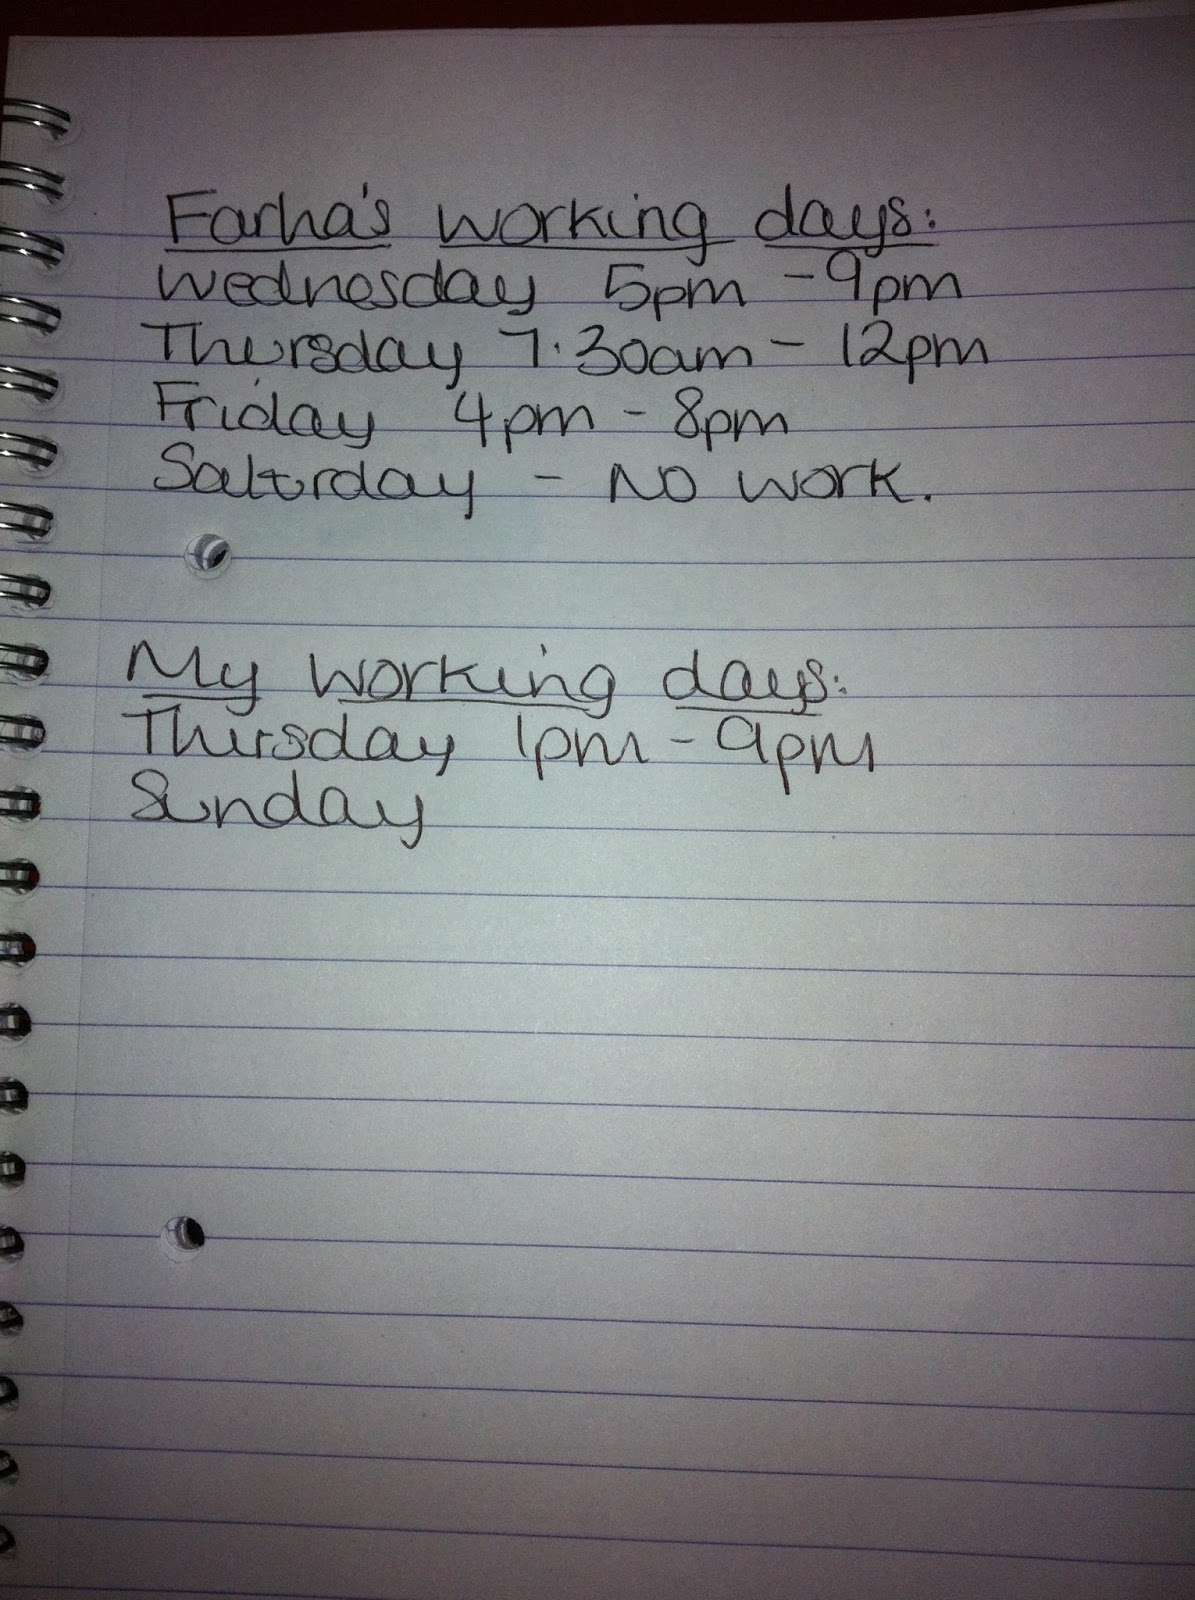 Farha's working days:
Wednesday 5pm - 9pm
Thursday 7.30am - 12pm
Friday 4pm - 8pm
Saturday - NO WORK.
My working days:
Thursday 1pm - 9pm
Sunday